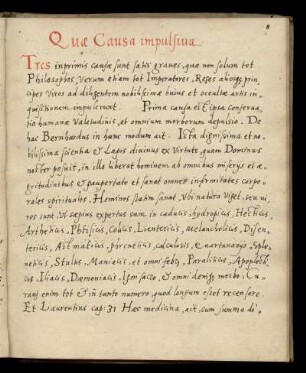 Quæ Causa impulsiua
Tres inprimis causæ sunt satis graves, quæ non solum tot
Philosophos, verum etiam tot Imperatores, Reges aliosque prin-
cipes viros ad diligentem nobilissimæ huius et occultæ artis in-
quisitionem impulerunt. Prima causa est ipsa conserva-
tio humanæ Valetudinis, et omnium morborum depulsio. De
hac Bernhardus in hunc modum ait. Ista dignissima et no-
bilissima scientia et Lapis divinus ex Virtute, quam Dominus
noster posuit, in illa liberat hominem ab omnibus miserijs et æ-
gritudinibus et paupertate et sanat omnes infirmitates corpo-
rales spirituales. Homines statim sanat, Vbi natura viget, seu vi-
res sunt, Vt sæpius expertus sum in caducis, hydropicis, Hecticis,
Arthriticis, Phtisicis, Colicis, Lientericis, melancholicis, Disen-
tericis, calculosis, quartanarijs, Sple-
neticis, Stultis, Maniacis, et omni febri, Paraliticis, Apoplecti-
cis, Iliacis, Dæmoniacis, ipso facto, et omni denique morbo: Cu-
ravj enim tot et in tanto numero, quod longum esset recensere.
Et Laurentius cap: 31 Hæc medicina, ait, cum summa di-